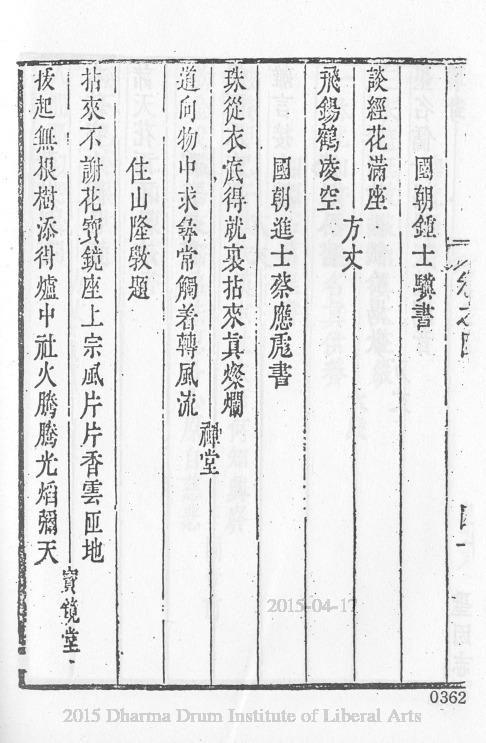 國朝鍾士驥書
談經花滿座
飛錫鶴凌空
方丈
國朝進士蔡應彪書
珠從衣底得就裏拈來眞燦爛
道向物中求尋常觸着轉風流
禪堂
住山隆斆題
拈來不謝花寶鏡座上宗風片片香雲匝地
拔起無根樹添得爐中社火騰騰光熖彌天
寶鏡堂
0362
2015-04-17
2015 Dharma Drum Institute of Liberal Arts